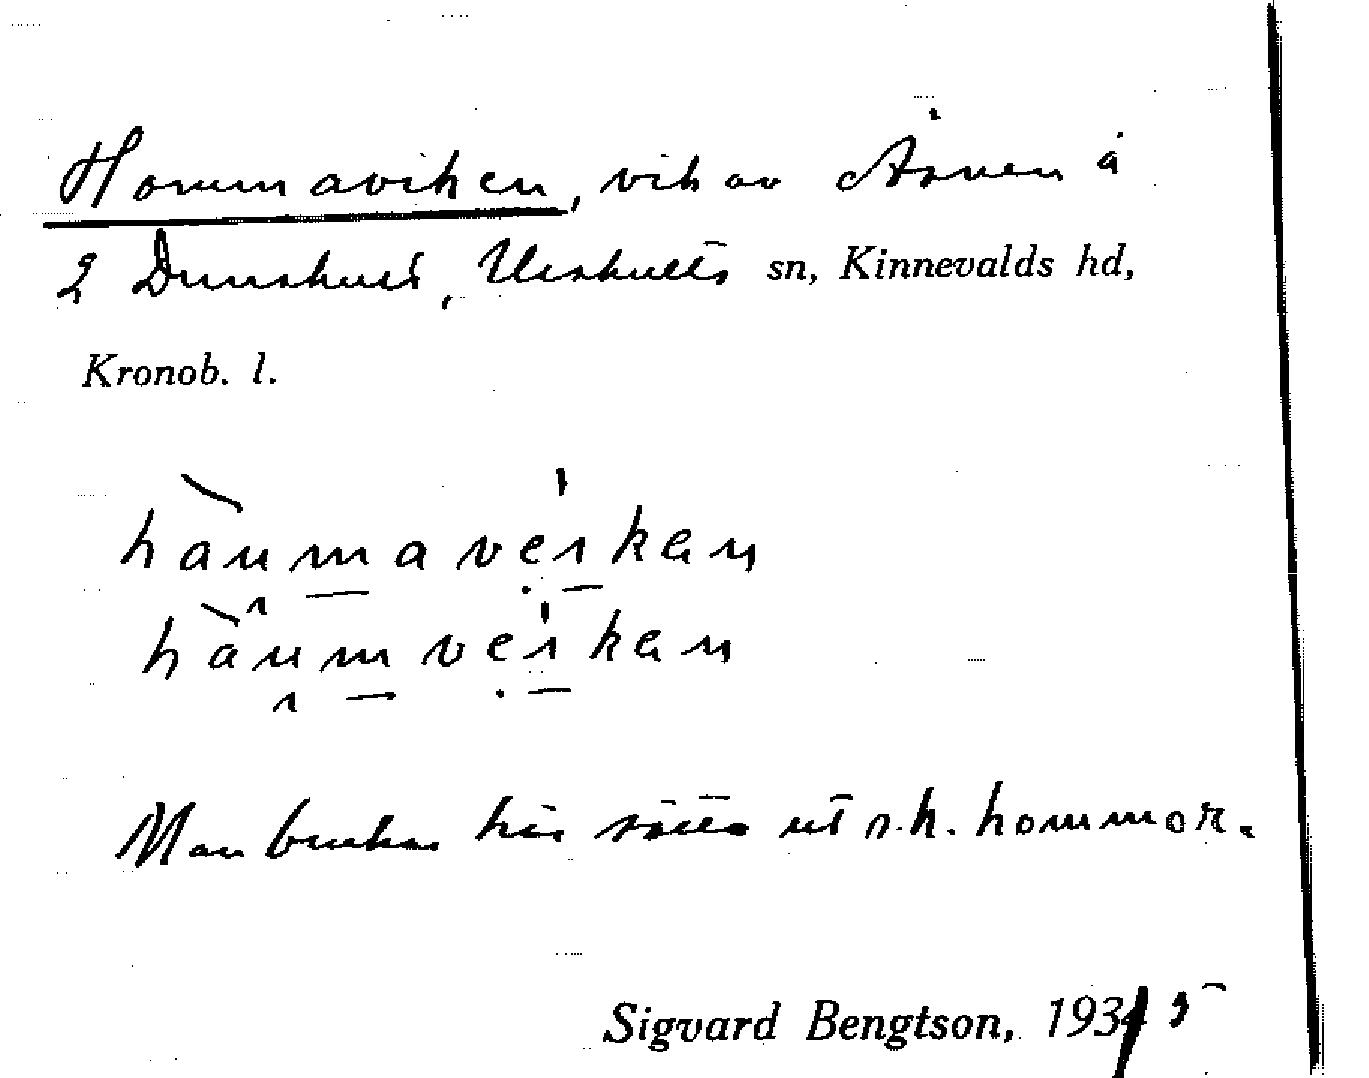 Hommaviken, vik av Åsnen å
2 Dunshult, Urshults sn, Kinnevalds hd,
Kronob. l.
hàumavèi̇kan
hàumvei̇kan
Man brukar här sätta ut s.k. hommor.
Sigvard Bengtson, 1935